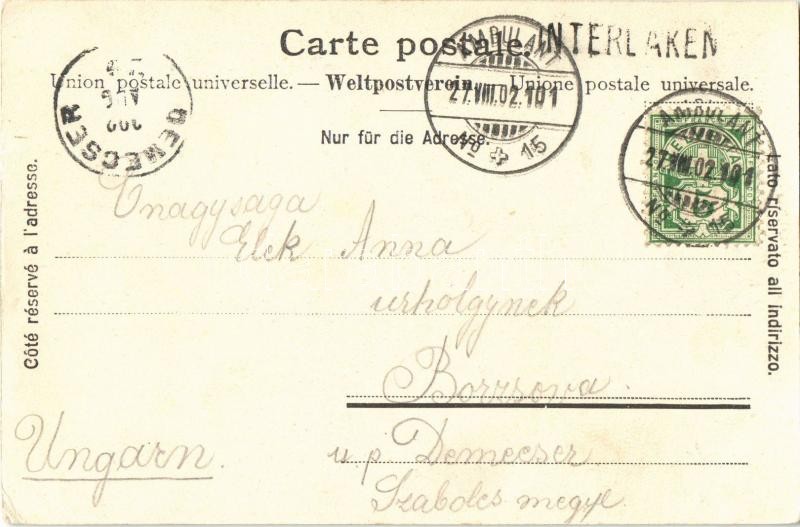 Carte postale. INTERLAKEN
Union postale universelle. — Weltpostverein. — Unione postale universale.
Nur für die Adresse.
Côté réservé à l'adresse.
Lato riservato all indirizzo.
AMBULANT
27.VIII.02.101
No 15
AMBULANT
27.VIII.02.101
No 15
DEMECSER
902
AUG
Önagysaga
Elek Anna
urhölgynek
Borzsova.
u. p Demecser
Szabolcs megye
Ungarn.